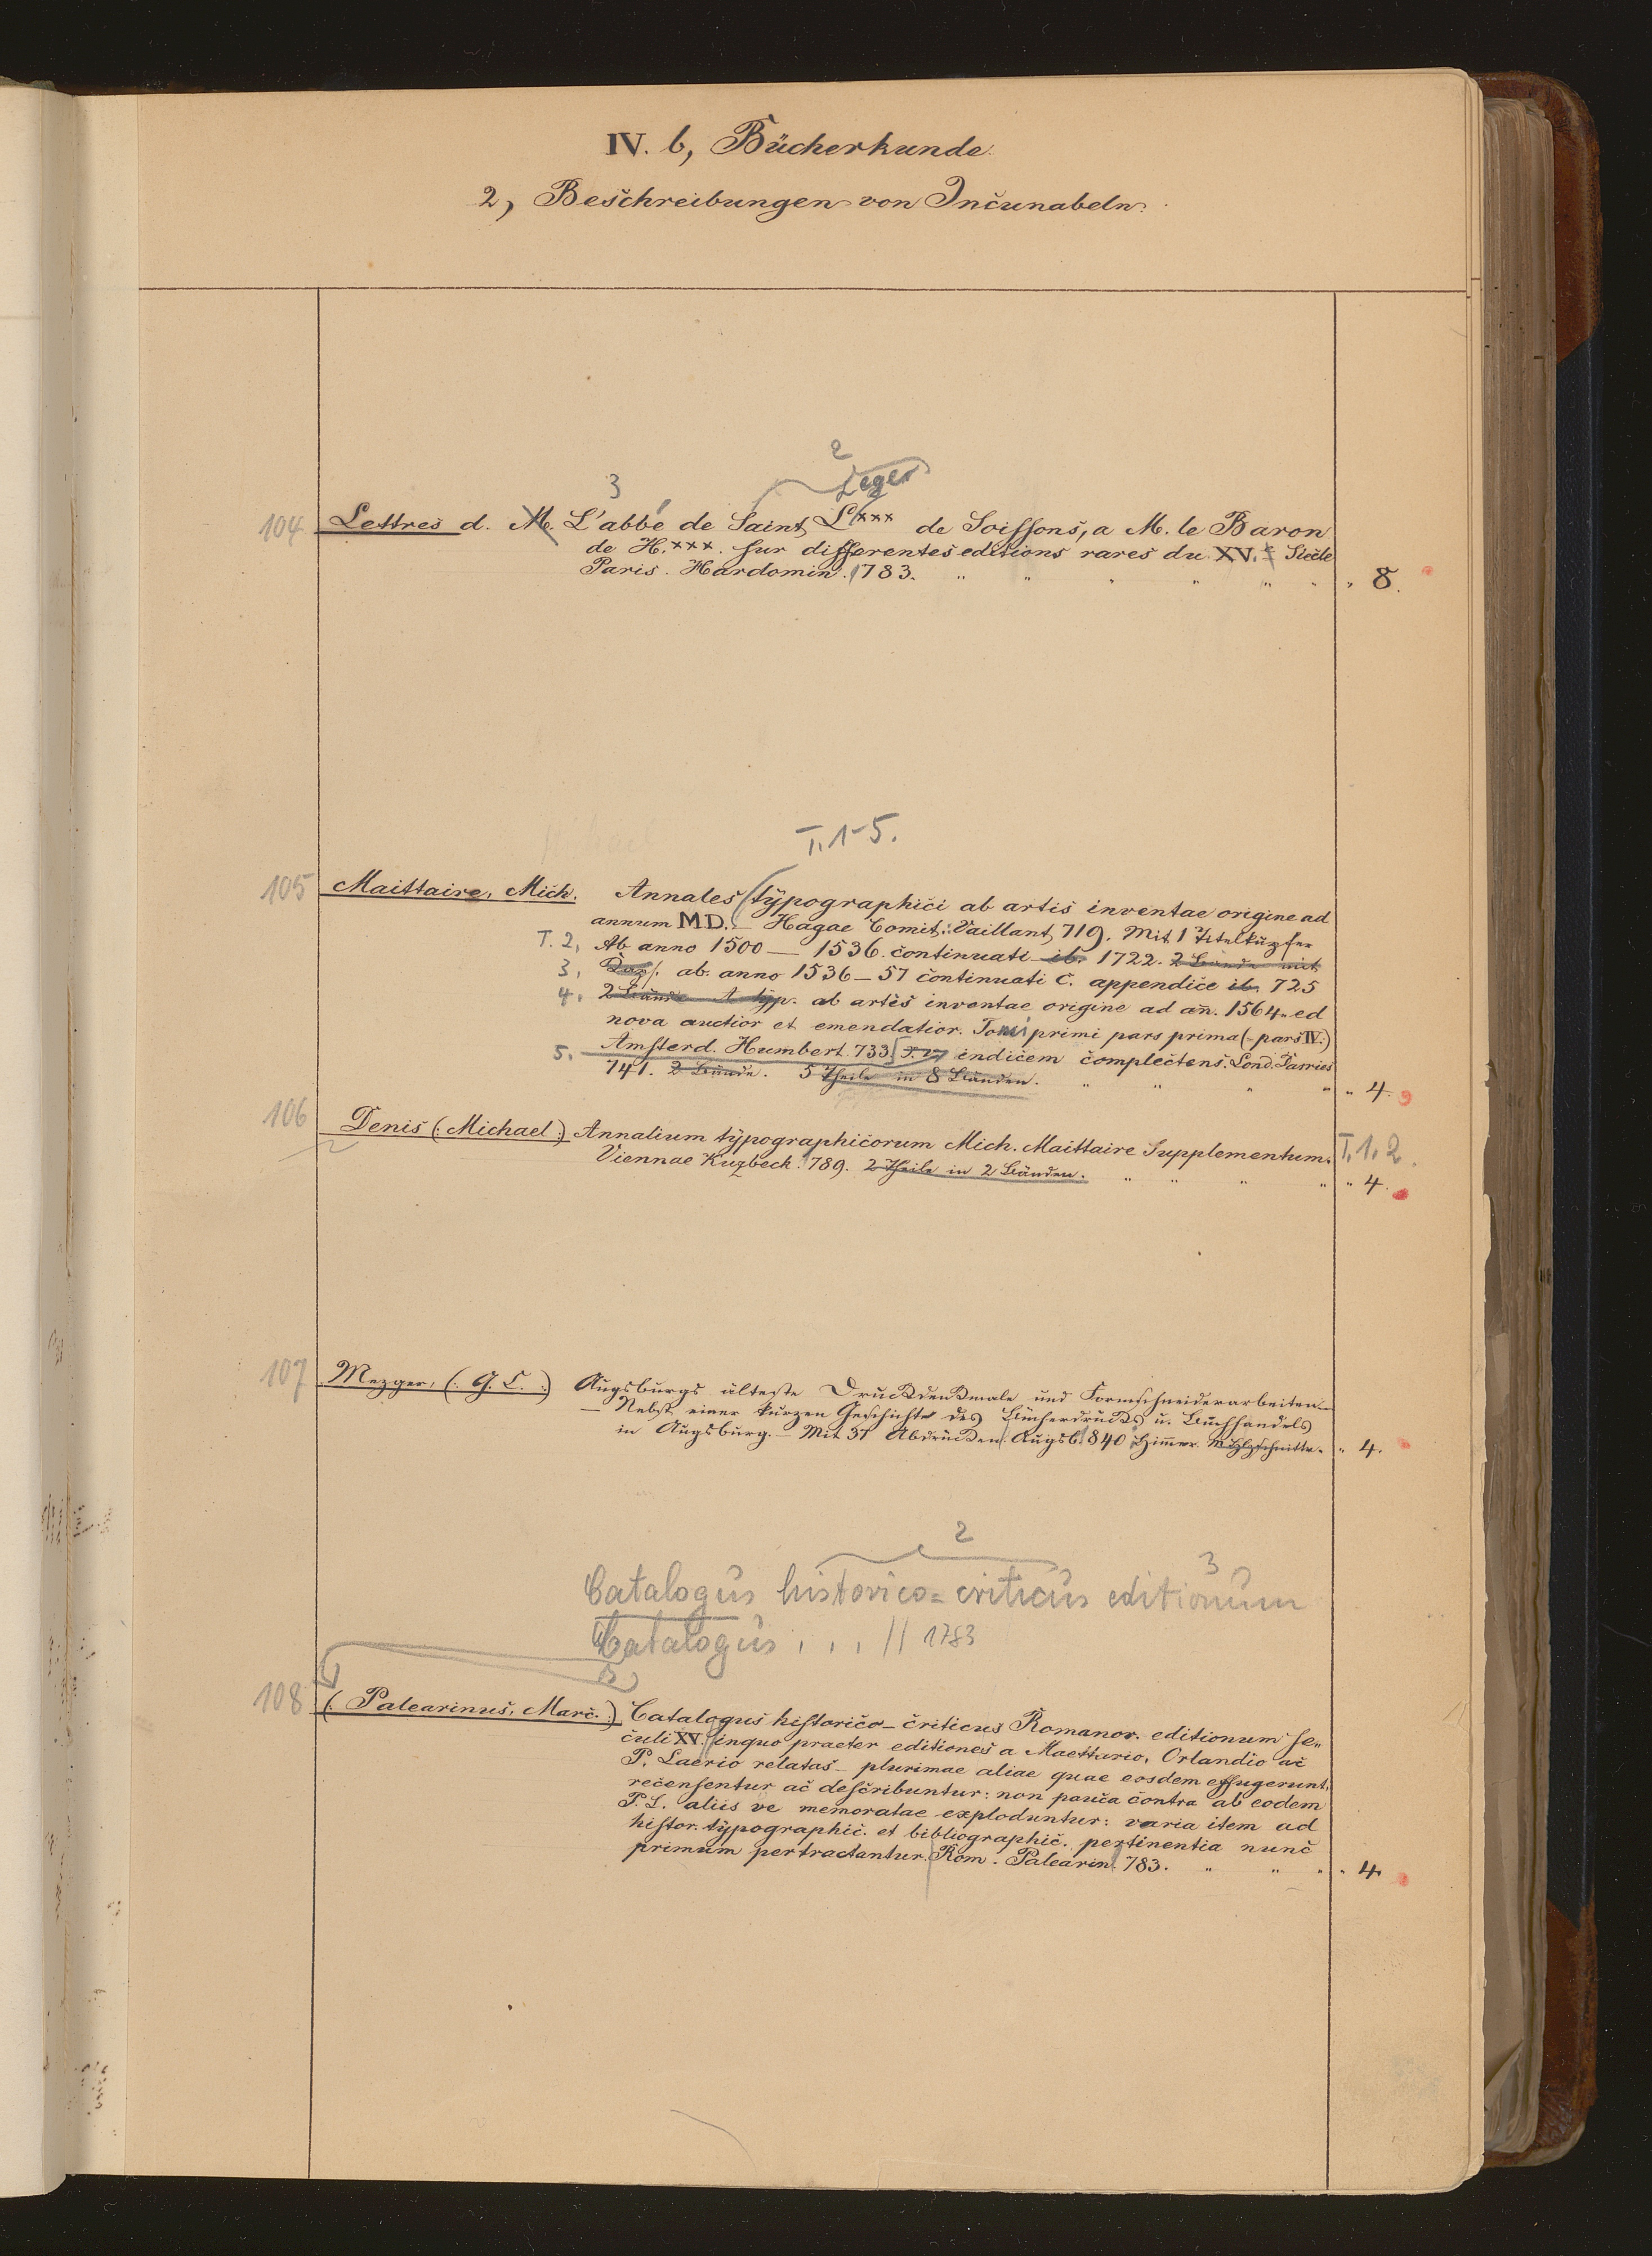 IV. b, Bücherkunde.
2, Beschreibungen von Incunabeln.
2
3 Leger
104 Lettres d. M. L'abbé de Saint L××× de Soissons, a M. le Baron
de H.×××. sur differentes editions rares du XV.e Siecle
Paris. Hardomin. 1783. " " " " " " " 8.
T. 1-5.
105 Maittaire, Mich. Annales typographici ab artis inventae origine ad
annum MD. – Hagae Comit. Vaillant, 719. Mit 1 Titelkupfer
T. 2, Ab anno 1500 – 1536. continuati ib. 1722. 2 Bände mit
3, ab. anno 1536 – 57 continuati c. appendice ib. 725
4, 2 Bände A typ. ab artis inventae origine ad an. 1564. ed
nova auctior et emendatior. Tomi primi pars prima (– pars IV.)
5. Amsterd. Humbert. 733. T. V indicem complectens. Lond. Darries
741. 2 Bände. 5 Theile in 8 Bänden. " " " " " 4.
106 Denis (: Michael :) Annalium typographicorum Mich. Maittaire Supplementum. T. 1. 2.
Viennae Kuzbeck. 789. 2 Theile in 2 Bänden. " " " " " 4.
107 Mezger, (: G. C. :) Augsburgs älteste Druckdenkmale und Formschneiderarbeiten –
– Nebst einer kurzen Geschichte des Bücherdrucks u. Buchhandels
in Augsburg. – Mit 37 Abdrücken. Augsb. 840 Himmer. m. Hlzschnitte. " 4.
2
3
Catalogus historico=criticus editionum
Catalogus . . . // 1783
108 (: Palearinus, Marc. :) Catalogus historico–criticus Romanor. editionum se„
culi XV. inquo praeter editiones a Maettario, Orlandio ac
P. Laerio relatas – plurimae aliae quae eosdem effugerunt,
recensentur ac describuntur: non pauca contra ab eodem
P. L. aliis ve memoratae exploduntur: varia item ad
histor. typographic. et bibliographic. pertinentia nunc
primum pertractantur. Rom. Palearin. 783. " " " " 4.